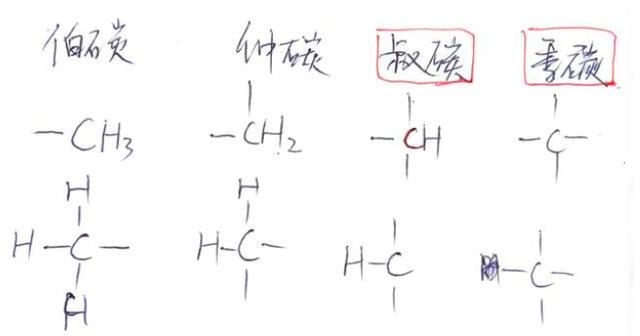 伯碳 仲碳 叔碳 季碳
-CH3 -CH2 -CH -C-
H H
H-C- H-C- H-C -C-
H